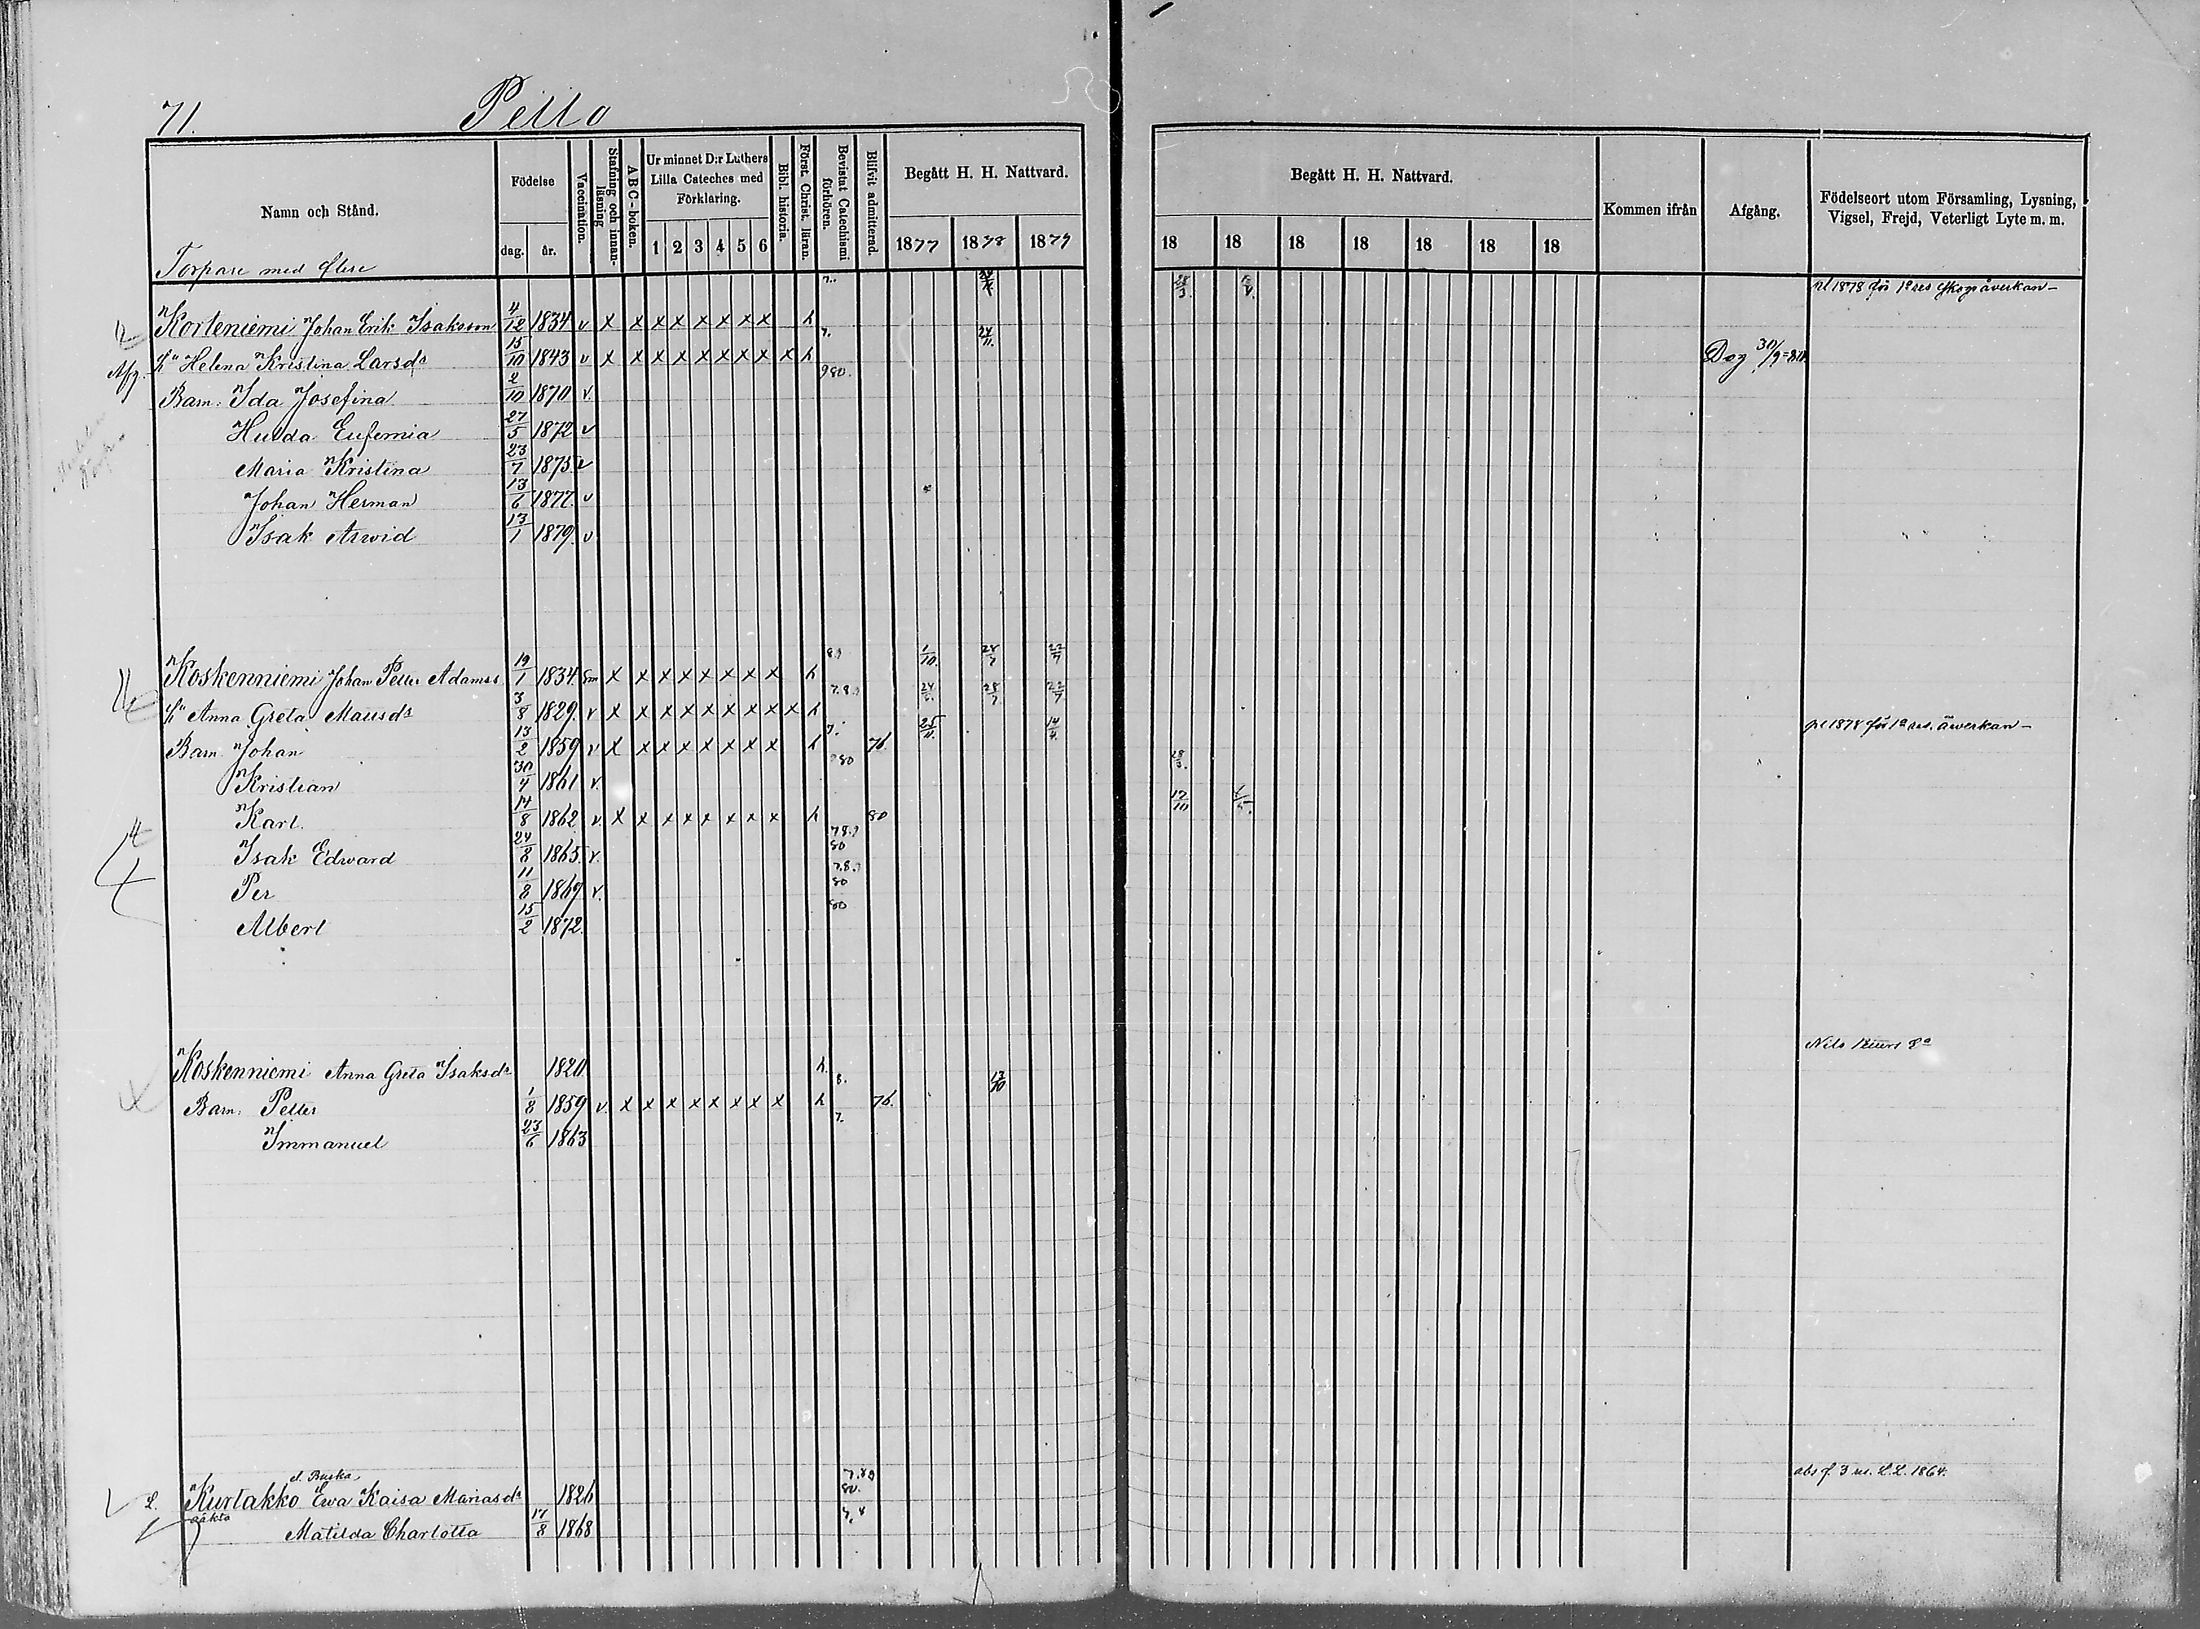 71.
Pello
Namn och Stånd.
Födelse
dag.
år.
Vaccination.
Stafning och innan-läsning
ABC-boken.
Ur minnet D:r Luthers
Lilla Cateches med
Förklaring.
1 2 3 4 5 6
Bibl. historia.
Först. Christ. läran.
Bevistat Catechismi förhören.
Blifvit admitterad.
Begått H. H. Nattvard.
1877 1878 1879
Begått H. H. Nattvard.
18 18 18 18 18 18 18
Kommen ifrån
Afgång.
Födelseort utom Församling, Lysning,
Vigsel, Frejd, Veterligt Lyte m. m.
Torpare med flere
Korteniemi Johan Erik Isaksson 4/12 1834 v x x x x x x x x h 7. 24/11 28/3. pl 1878 för 1a res skogsåverkan-
Afg. H:u Helena Kristina Larsdr 15/10 1843 v x x x x x x x x x h 7. 24/11. Dog 30/9
Barn: Ida Josefina 2/10 1870 v. 980.
Hulda Eufemia 27/5 1872 v
Maria Kristina 23/7 1875 v
Johan Herman 13/6 1877. v
Isak Arwid 13/1 1879. v
Koskenniemi Johan Petter Adamss 19/1 1834. x x x x x x x x h 1/10. 28/7 22/7
H:u Anna Greta Mausdr 3/8 1829. v x x x x x x x x x h 7.8.9 28/7 22/7
Barn Johan 13/2 1859 v x x x x x x x x h 7. 76. 25/11. 14/4. pl 1878 för 1a res. åwerkan-
Kristian 30/4 1861 v. 980 28/3.
Karl. 14/8 1862 v. x x x x x x x x h 80 17/10
Isak Edward 24/8 1865. v. 7 8.9 80
Per 11/8 1869 v. 7.8.9 80
Albert 15/2 1872. 80
Koskenniemi Anna Greta Isaksdr 1820 h.
Barn: Petter 1/8 1859 v. x x x x x x x x h 8. 76. 13/10
Immanuel 23/6 1863 7.
el. Buska
Kurtakko Ewa Kaisa Mariasdr 1826 7.89 80. abs f. 3 m. L.L. 1864.
oäkta
Matilda Charlotta 17/8 1868